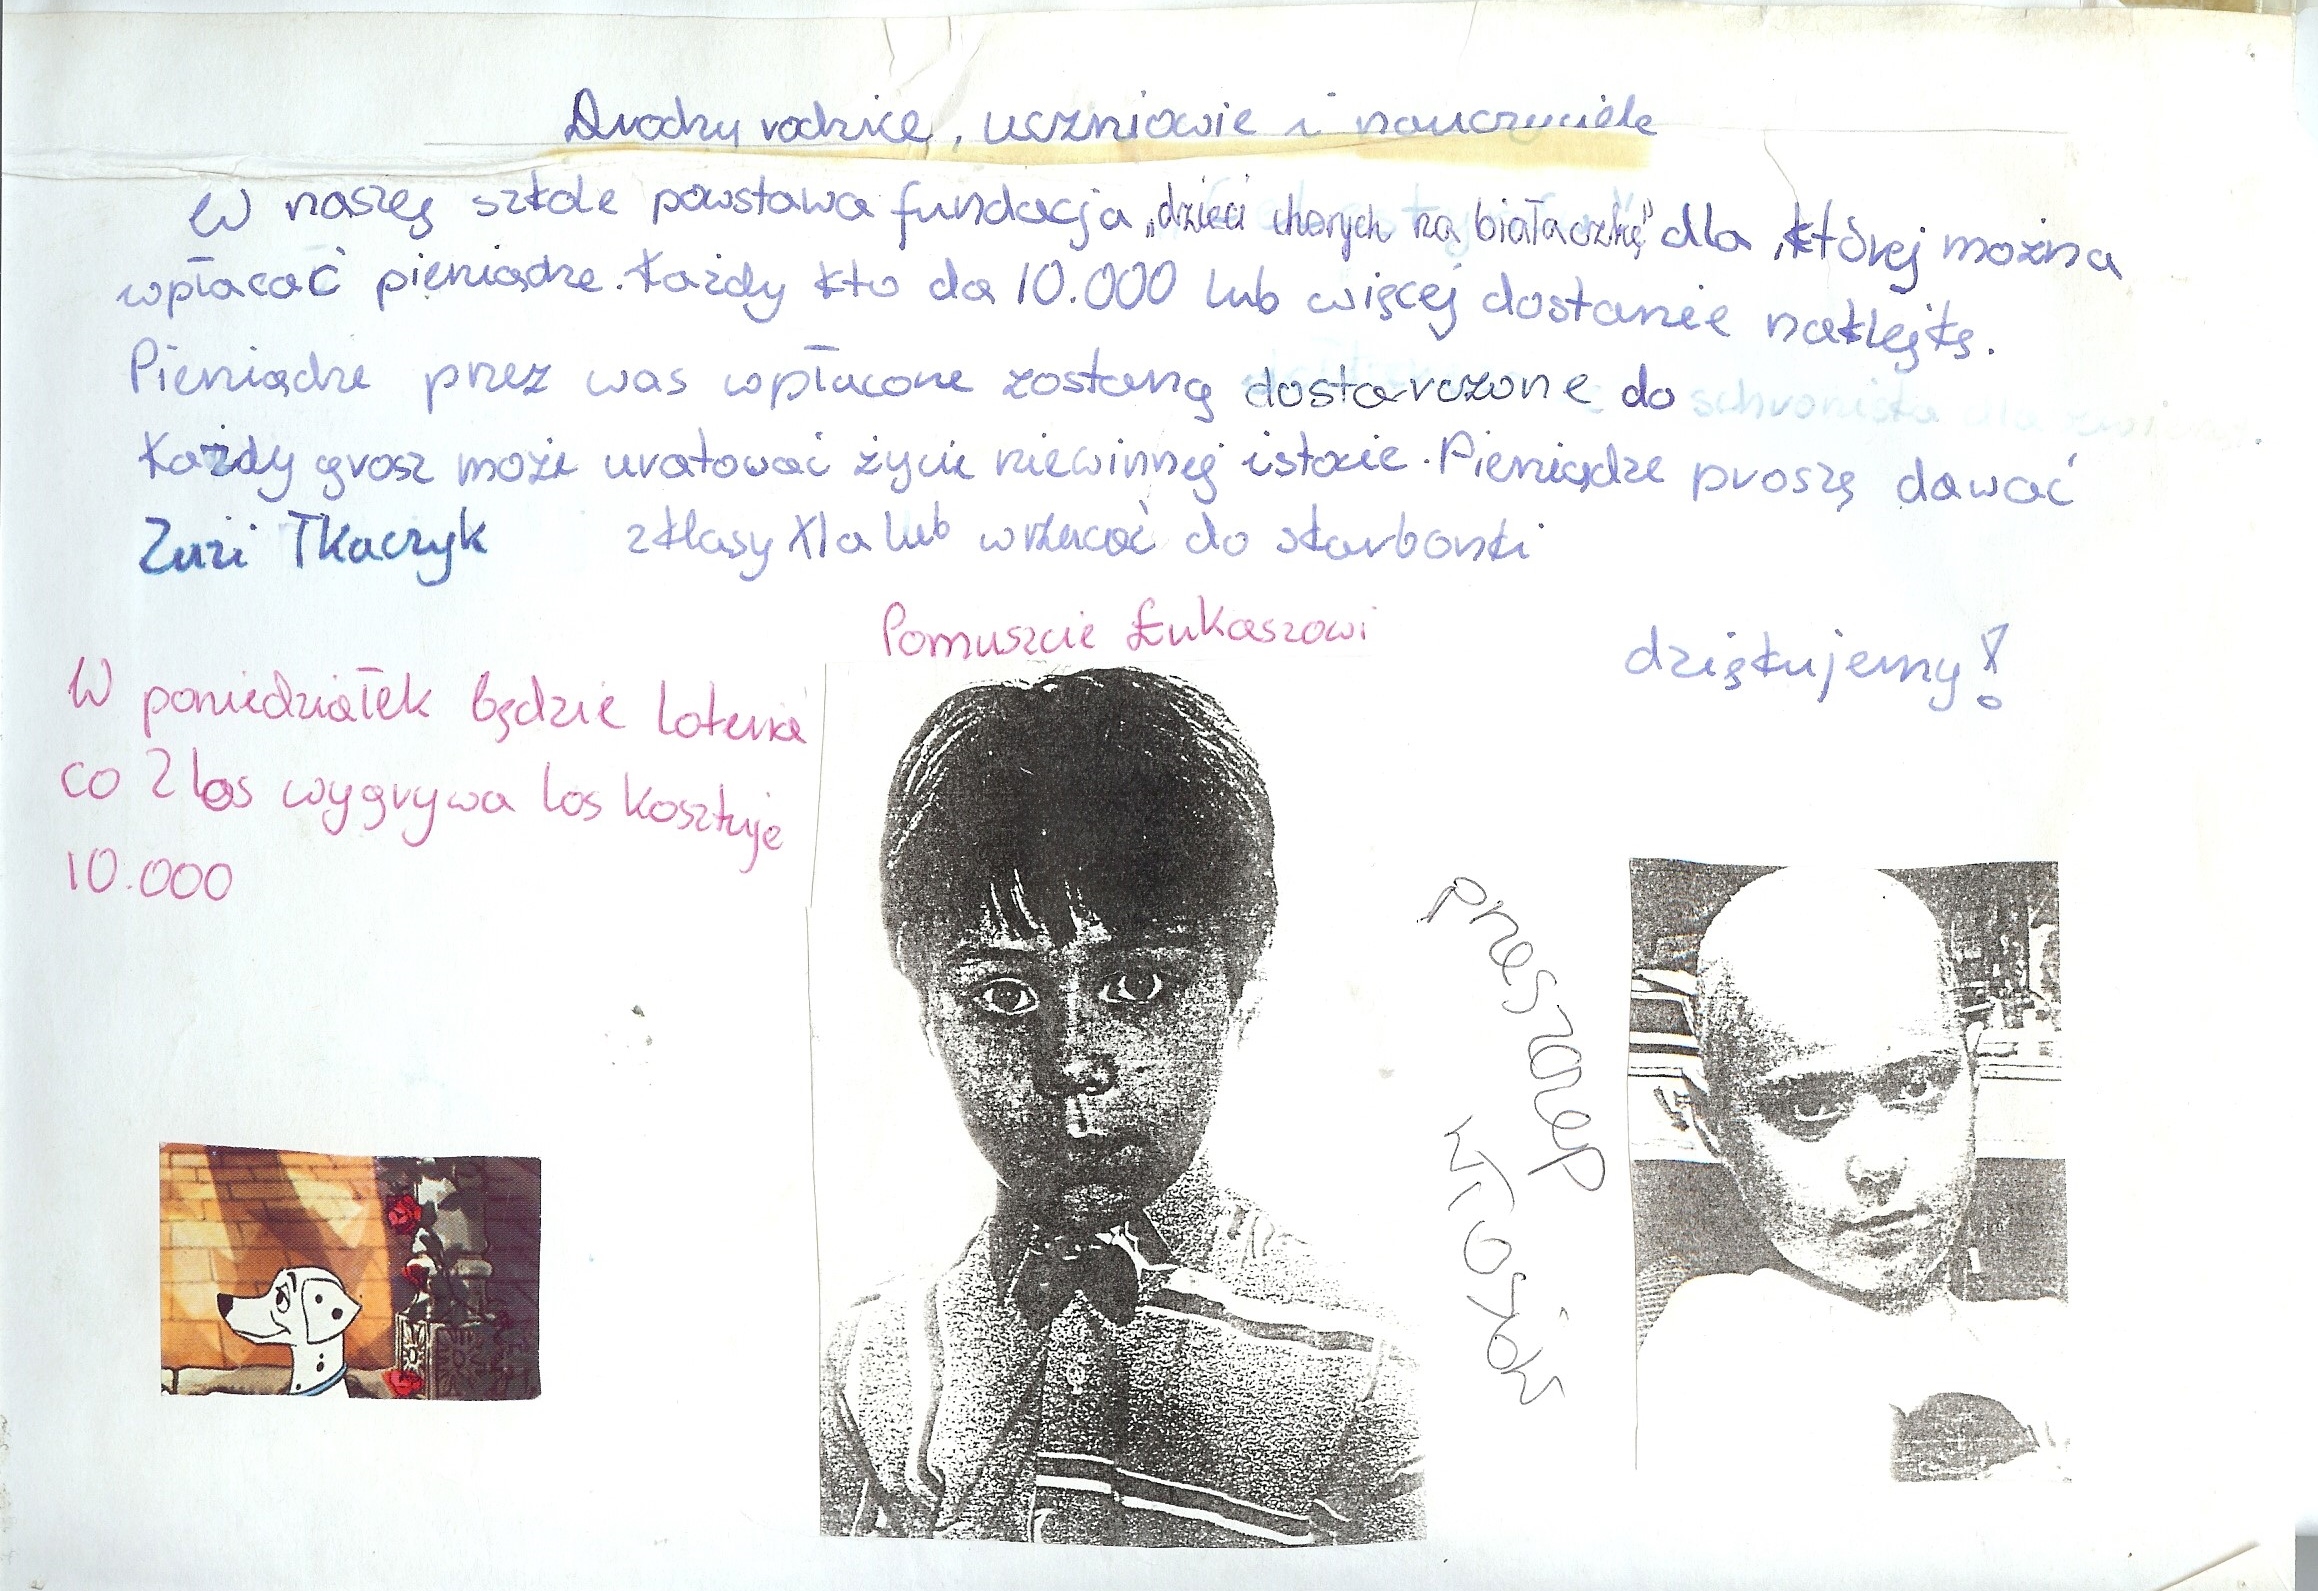 Drodzy rodzice, uczniowie i nauczyciele
W naszej szkole powstawa fundacja „dzieci chorych na białaczkę" dla której można
wpłacać pieniądze. Każdy kto da 10.000 lub więcej dostanie naklejkę.
Pieniądze przez was wpłacone zostaną dostarczone do schroniska dla
Każdy grosz może uratować życie niewinnej istocie. Pieniądze proszę dawać
Zuzi Tkaczyk z klasy XIa lub wrzucać do skarbonki
Pomuszcie Łukaszowi
dziękujemy!
W poniedziałek będzie loteria
co 2 los wygrywa los kosztuje
10.000
przeszczep
włosów